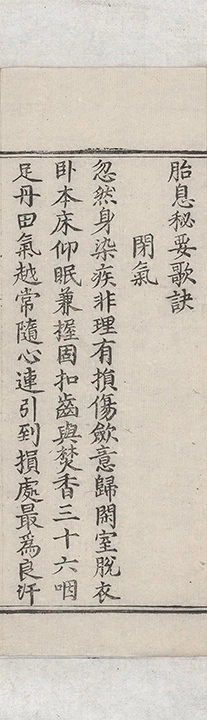 胎息秘要歌訣
閉氣
忽然身染疾非理有損傷斂意歸閑室脫衣
卧本床仰眠兼握固扣齒與焚香三十六咽
足丹田氣越常隨心連引到損處最為良汗